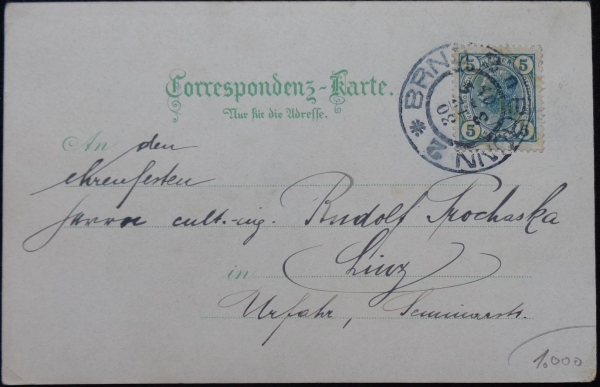 Correspondenz-Karte.
Nur für die Adresse.
An den
ehrenfesten
Herrn cult.-ing. Rudolf Prochaska
in Linz
Urfahr, Seminarstr.
BRNO
2
5 5
5 5
1.000